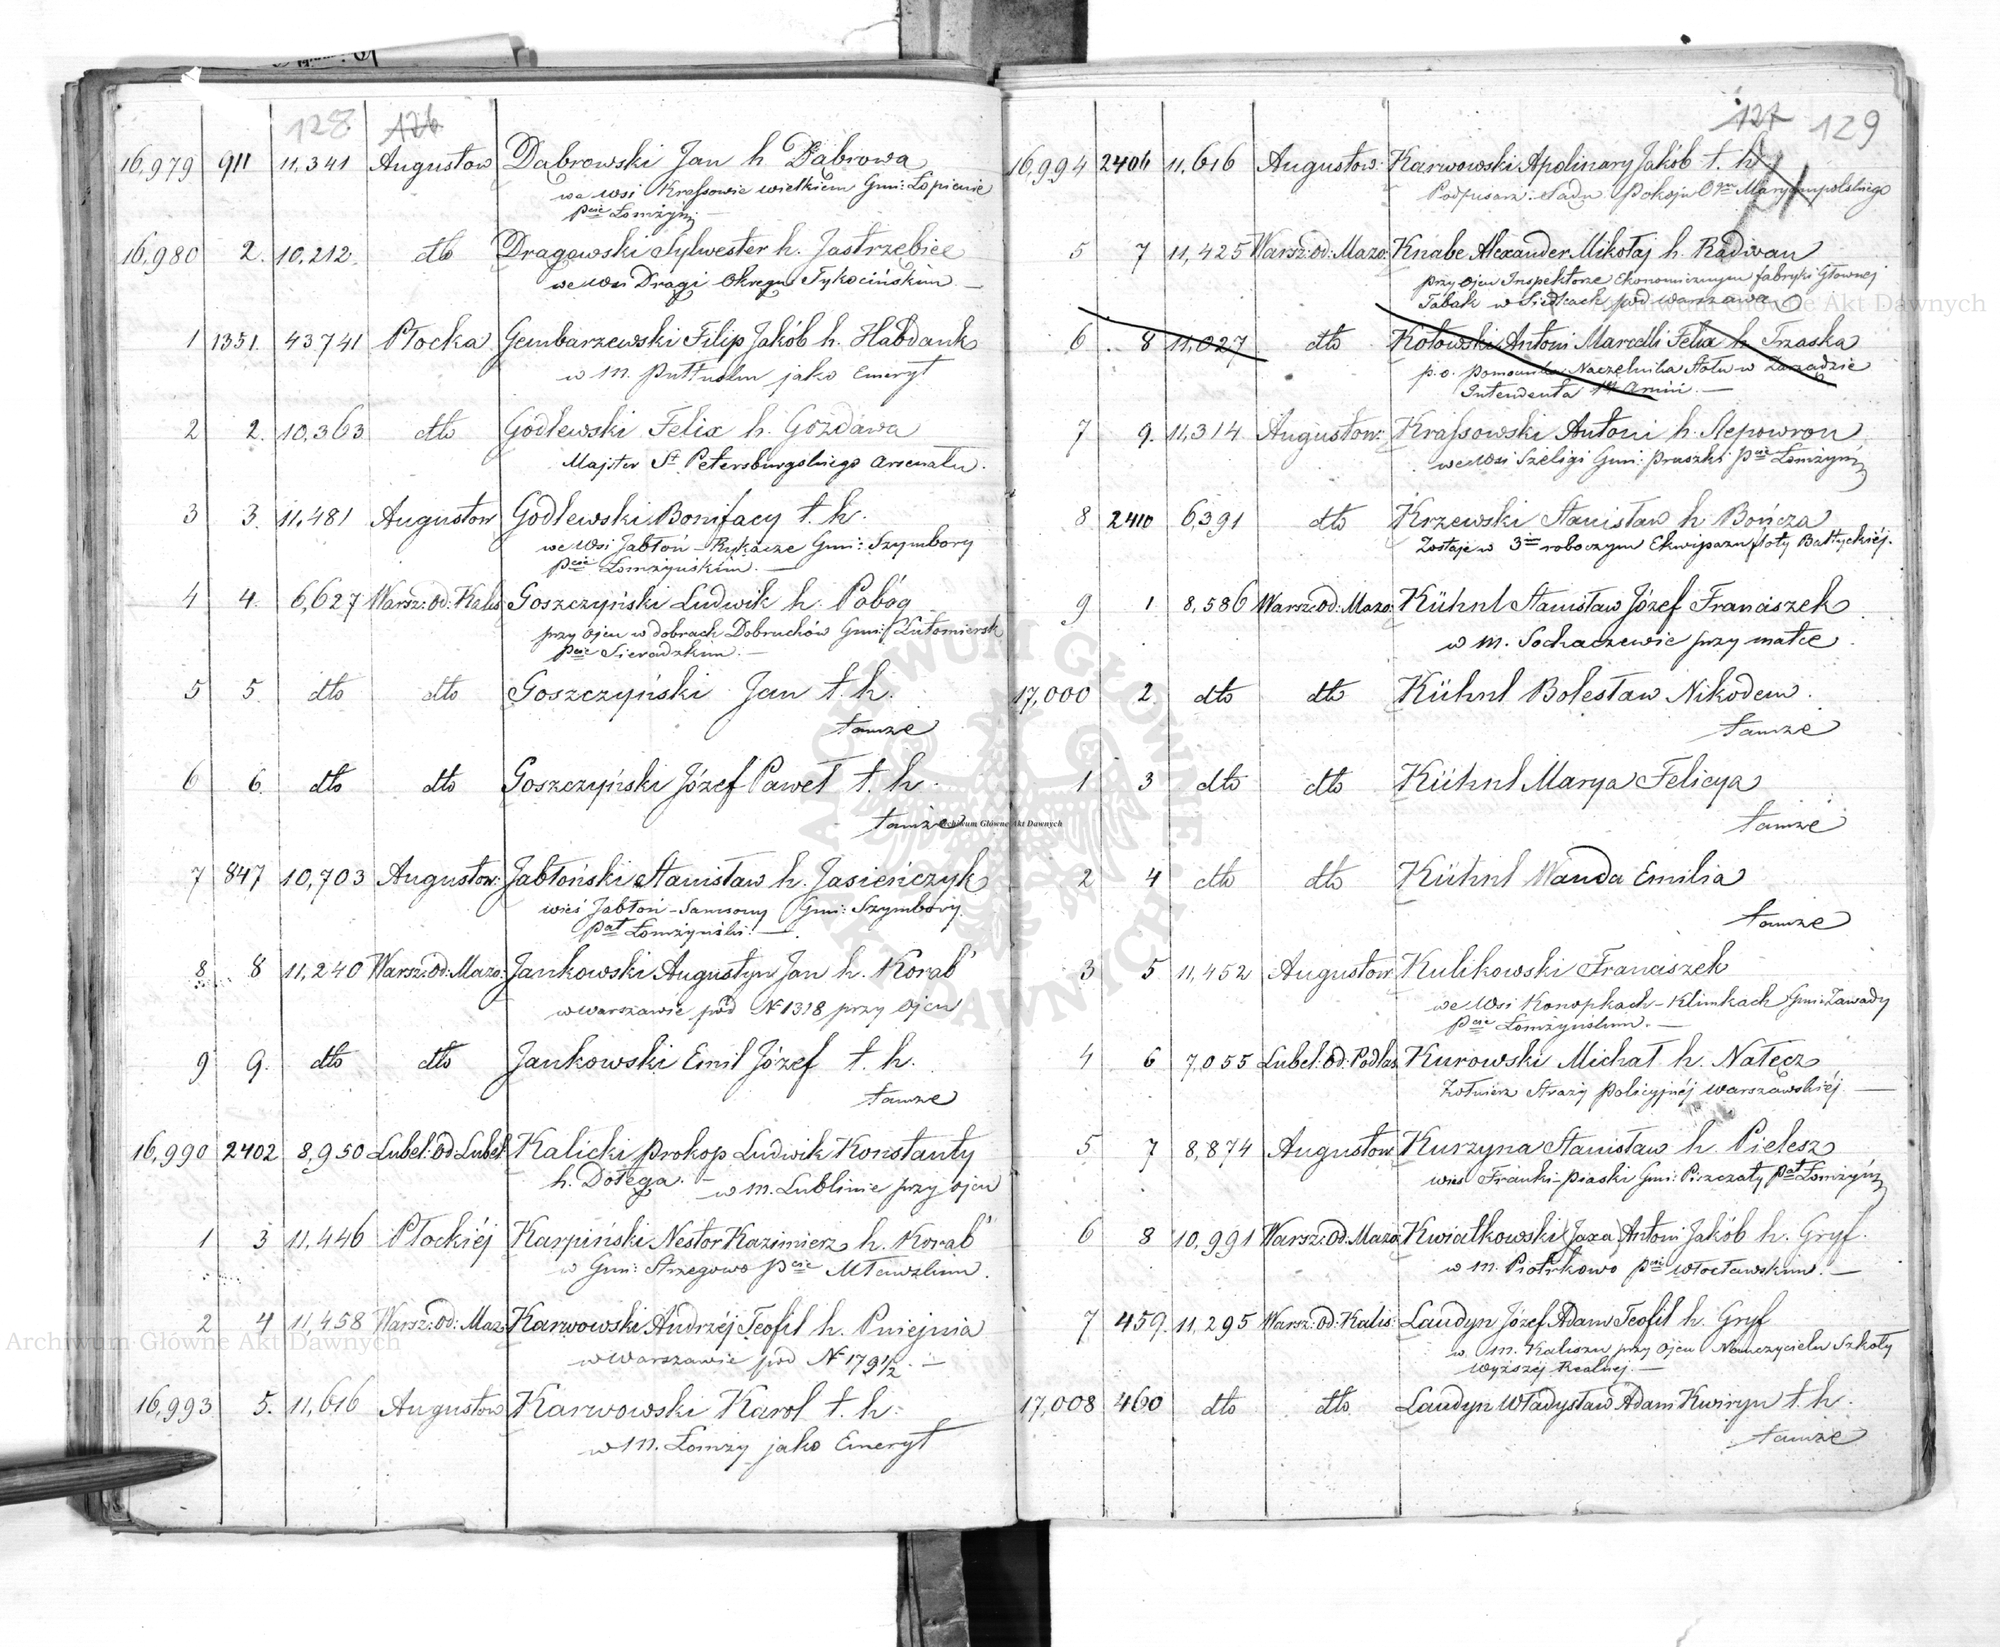 128 126
16,979 911 11,341 Augustow Dąbrowski Jan h Dąbrowa
we wsi Krassowie wielkiem Gmi: Łopienie
Pcie Łomżyń:
16,980 2. 10,212. dto Dragowski Sylwester h. Jastrzębiec
we wsi Dragi Okręgu Tykocińskim
1 1351. 43741 Płocka Gembarzewski Filip Jakób h. Habdank
w M. Pułtusku jako Emeryt
2 2. 10,363 dto Godlewski Felix h. Gozdawa
Majster St Petersburgskiego Arsenału.
3 3. 11,481 Augustow Godlewski Bonifacy t. h.
we wsi Jabłoń-Rykacze Gmi: Szymbory
Pcie Łomżyńskim.
4 4. 6,627 Warsz: Od: Kalis Goszczyński Ludwik h: Pobóg
przy ojcu w dobrach Dobruchów Gmi: Lutomiersk
Pcie Sieradzkim.
5 5. dto dto Goszczyński Jan t. h.
tamże
6 6. dto dto Goszczyński Józef Paweł t. h.
tamże
7 847 10,703 Augustow: Jabłoński Stanisław h. Jasieńczyk
wieś Jabłoń-Samsony Gmi: Szymbory
Pat Łomżyński.
8 8 11,240 Warsz: Od: Mazo: Jankowski Augustyn Jan h. Korab
w Warszawie pod N 1318 przy Ojcu
9 9. dto dto Jankowski Emil Józef t. h.
tamże
16,990 2402 8,950 Lubel: Od Lubel: Kalicki Prokop Ludwik Konstanty
h. Dołęga. - w M. Lublinie przy ojcu
1 3 11,446 Płockiéj Karpiński Nestor Kazimierz h. Korab
w Gmi: Strzegowo Pcie Mławskim.
2 4 11,458 Warsz: Od: Maz: Karwowski Andrzéj Teofil h. Pniejnia
w Warszawie pod N 179 1/2.
16,993 5. 11,616 Augustow Karwowski Karol t. h.
w M. Łomży jako Emeryt
127 129
16,994 2406 11,616 Augustow: Karwowski Apolinary Jakób t. h
Podpisarz Sadu Pokoju Ogu Maryampolskiego
5 7 11,425 Warsz: Od: Mazo: Knabe Alexander Mikołaj h. Radwan
przy Ojcu Inspektorze Ekonomicznym fabryki Głownej
Tabak w Sielcach pod Warszawą
6 8 11,027 dto Kotowski Antoni Marcelli Felix h. Trzaska
p. o. Pomocnika Naczelnika Stołu w Zarządzie
Intendenta Armii.
7 9. 11,314 Augustow: Krassowski Antoni h. Slepowron
we wsi Szeligi Gmi: Pruszki Pcie Łomżyń:
8 2410 6,391 dto Krzewski Stanisław h. Bończa
Zostaje w 3m roboczym Ekwipażu floty Bałtyckiéj.
9 1 8,586 Warsz: Od: Mazo: Kühnl Stanisław Józef Franciszek
w M. Sochaczewie przy matce
17,000 2 dto dto Kühnl Bolesław Nikodem.
tamże
1 3 dto dto Kühnl Marya Felicya
tamże
2 4 dto dto Kühnl Wanda Emilia
tamże
3 5 11,452 Augustow Kulikowski Franciszek
we wsi Konopkach-Klimkach Gmi: Zawady
Pcie Łomżyńskim.
4 6 7,055 Lubel: Od: Podlas Kurowski Michał h. Nałęcz
Żołnierz Straży Policyjnéj Warszawskiéj.
5 7 8,874 Augustow Kurzyna Stanisław h. Pielesz
wieś Franki-Piaski Gmi: Piszczaty Pat Łomżyń:
6 8 10,991 Warsz: Od: Mazo Kwiatkowski (Jaxa) Antoni Jakób h. Gryf.
w M. Piotrkowo Pcie Włocławskim.
7 459. 11,295 Warsz: Od: Kalis: Laudyn Józef Adam Teofil h. Gryf
w. M. Kaliszu przy ojcu Nauczycielu Szkoły
Wyższéj Realnej.
17,008 460 dto dto Laudyn Władysław Adam Kwiryn t. h.
tamże
Archiwum Główne Akt Dawnych
Archiwum Główne Akt Dawnych
Archiwum Główne Akt Dawnych
ARCHIWUM GŁÓWNE AKT DAWNYCH